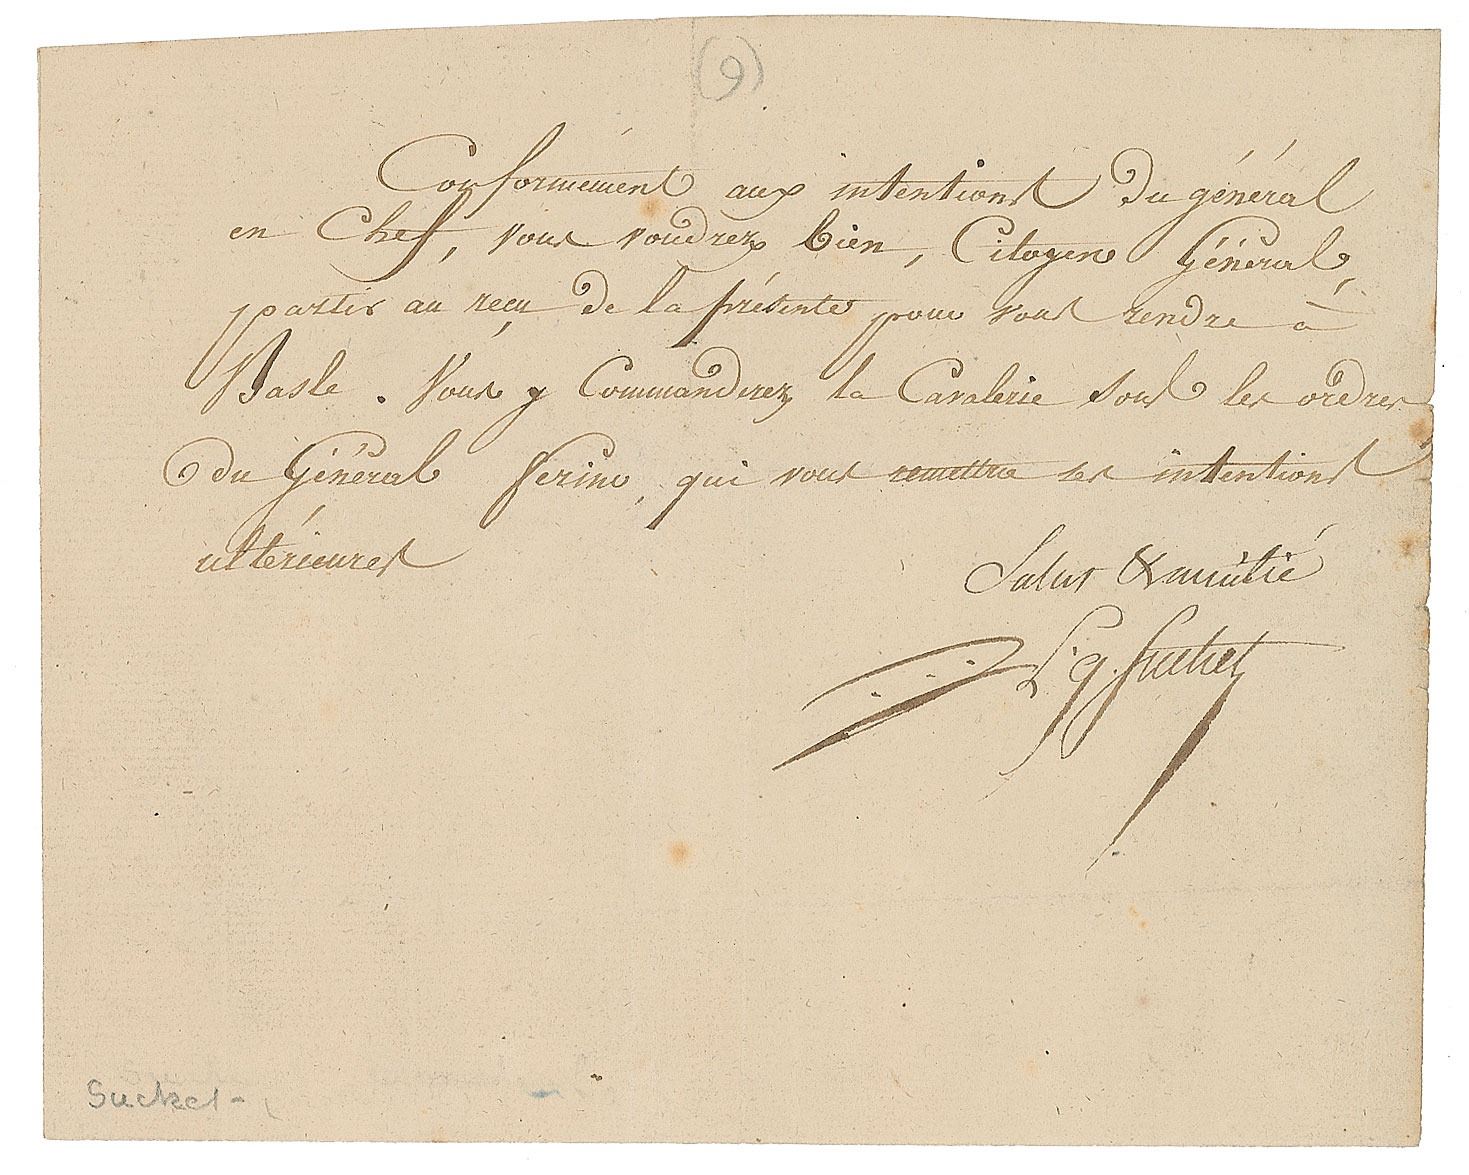 (9)
Conformément aux intentions du général
en Chef, vous voudrez bien, Citoyen Général,
partir au reçu de la présente pour vous rendre à
Basle. Vous y Commanderez la Cavalerie sous les ordres
du Général Ferino, qui vous remettra ses intentions
ultérieures
Salut & amitié
L. g. Suchet
Suchet -